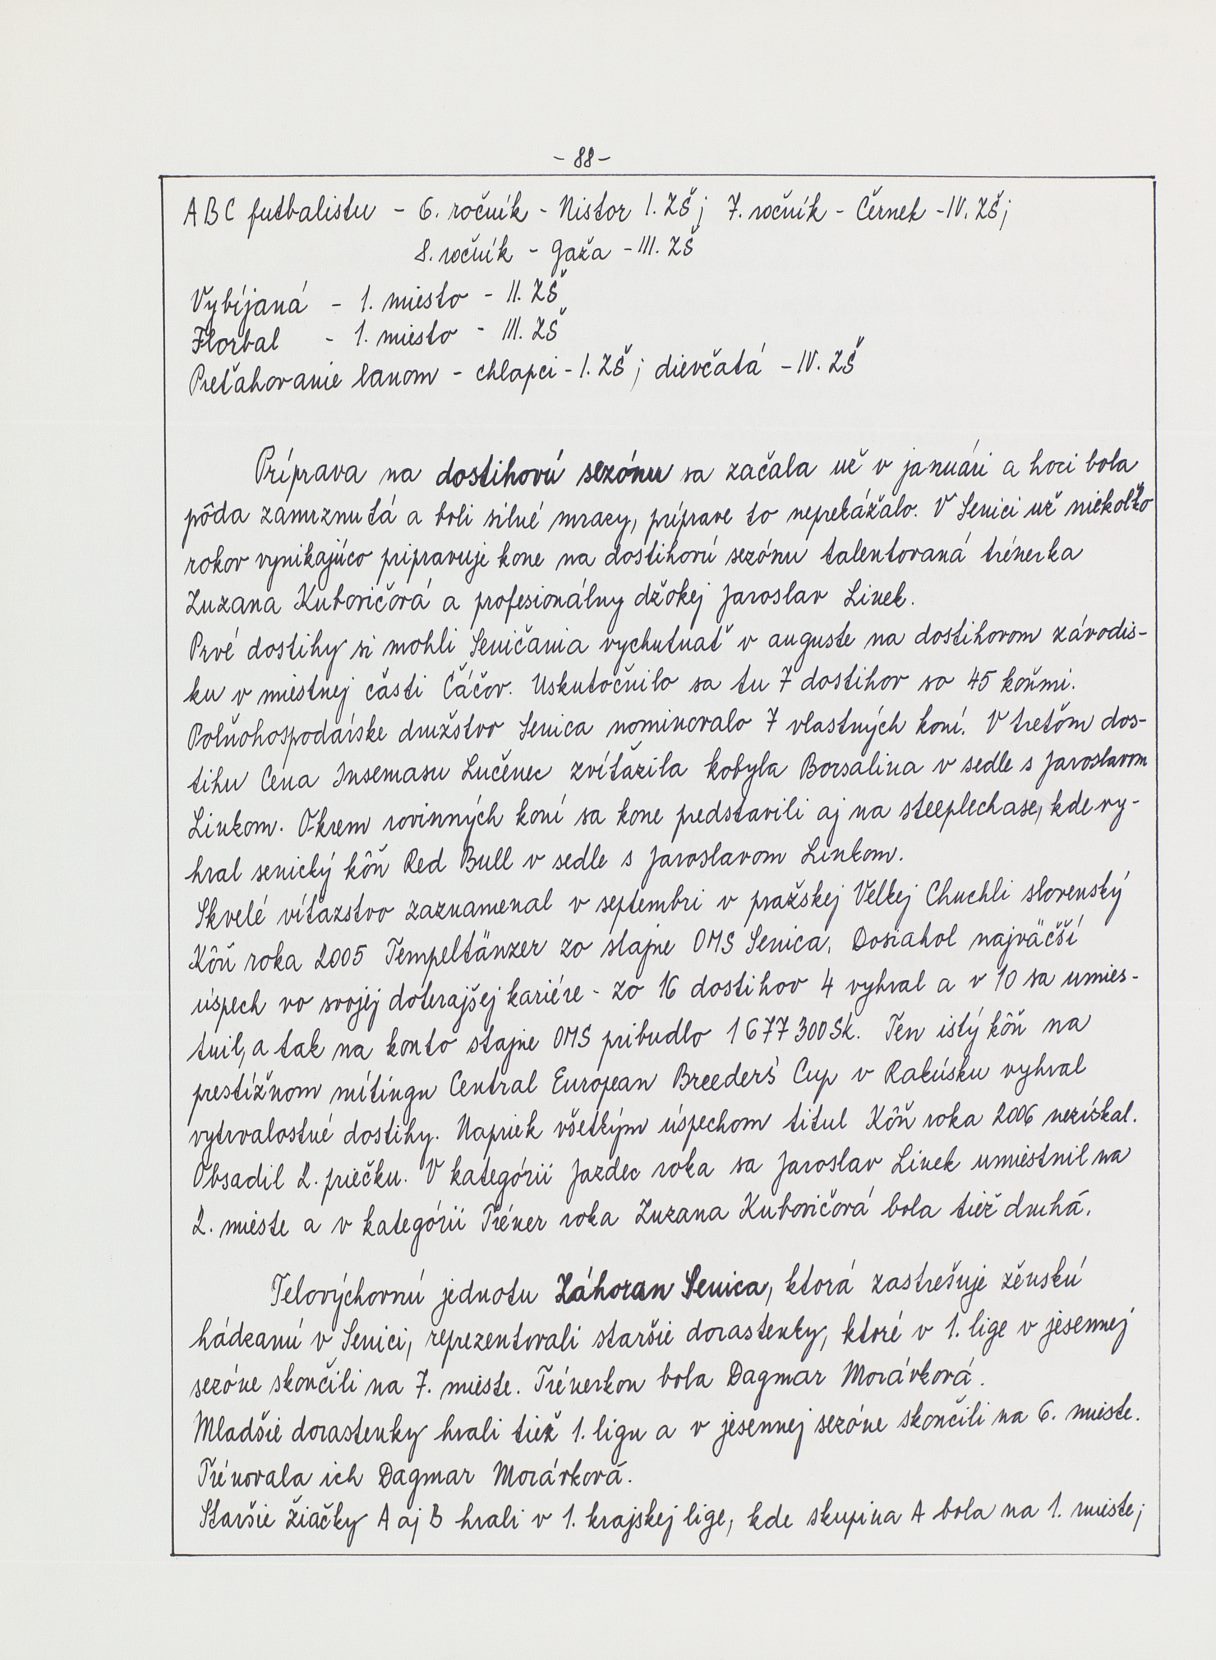 - 88 -
ABC futbalistu - 6. ročník - Nistor I. ZŠ; 7. ročník - Černek - IV. ZŠ;
8. ročník - Gaža - III. ZŠ
Vybíjaná - 1. miesto - II. ZŠ
Florbal - 1. miesto - III. ZŠ
Preťahovanie lanom - chlapci - I. ZŠ; dievčatá - IV. ZŠ
Príprava na dostihovú sezónu sa začala už v januári a hoci bola
pôda zamrznutá a boli silné mrazy, príprave to neprekážalo. V Senici už niekoľko
rokov vynikajúco pripravuje kone na dostihovú sezónu talentovaná trénerka
Zuzana Kubovičová a profesionálny džokej Jaroslav Línek.
Prvé dostihy si mohli Seničania vychutnať v auguste na dostihovom závodis-
ku v miestnej časti Čáčov. Uskutočnilo sa tu 7 dostihov so 45 koňmi.
Poľnohospodárske družstvo Senica nominovalo 7 vlastných koní. V treťom dos-
tihu Cena Insemasu Lučenec zvíťazila kobyla Borsalina v sedle s Jaroslavom
Línkom. Okrem rovinných koní sa kone predstavili aj na steeplechase, kde vy-
hral senický kôň Red Bull v sedle s Jaroslavom Línkom.
Skvelé víťazstvo zaznamenal v septembri v pražskej Veľkej Chuchli slovenský
Kôň roka 2005 Tempeltänzer zo stajne OMS Senica. Dosiahol najväčší
úspech vo svojej doterajšej kariére - zo 16 dostihov 4 vyhral a v 10 sa umies-
tnil, a tak na konto stajne OMS pribudlo 1 677 300 Sk. Ten istý kôň na
prestížnom mítingu Central European Breeder's Cup v Rakúsku vyhral
vytrvalostné dostihy. Napriek všetkým úspechom titul Kôň roka 2006 nezískal.
Obsadil 2. priečku. V kategórii Jazdec roka sa Jaroslav Línek umiestnil na
2. mieste a v kategórii Tréner roka Zuzana Kubovičová bola tiež druhá.
Telovýchovnú jednotu Záhoran Senica, ktorá zastrešuje ženskú
hádzanú v Senici, reprezentovali staršie dorastenky, ktoré v 1. lige v jesennej
sezóne skončili na 7. mieste. Trénerkou bola Dagmar Morávková.
Mladšie dorastenky hrali tiež 1. ligu a v jesennej sezóne skončili na 6. mieste.
Trénovala ich Dagmar Morávková.
Staršie žiačky A aj B hrali v 1. krajskej lige, kde skupina A bola na 1. mieste;